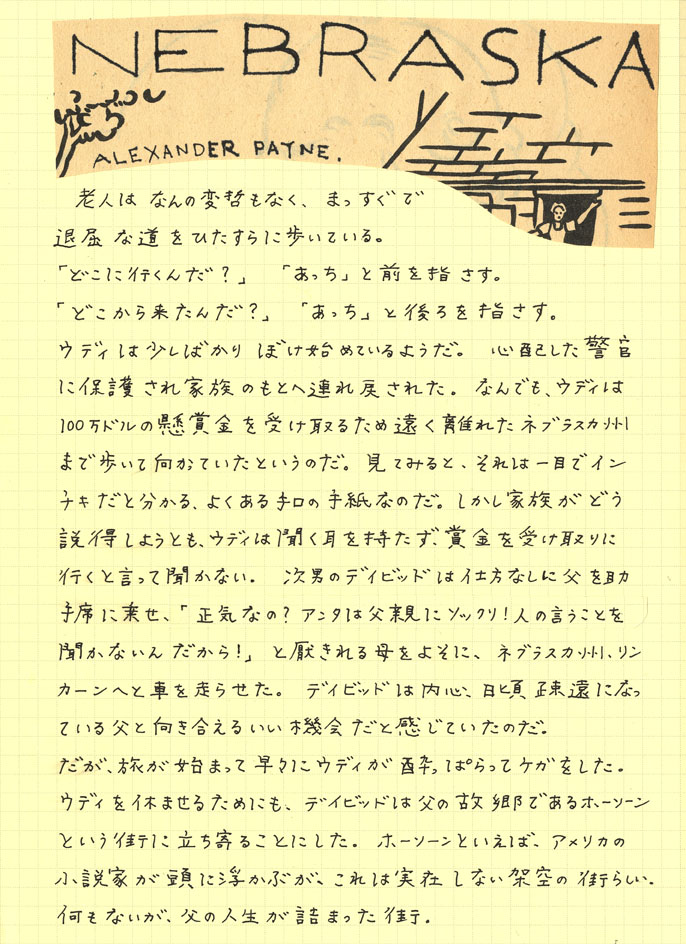 NEBRASKA
ALEXANDER PAYNE.
老人は なんの変哲もなく、まっすぐで
退屈 な道 をひたすらに歩いている。
「どこに行くんだ?」 「あっち」と 前を指 さす。
「どこから来たんだ?」 「あっち」と 後ろを指さす。
ウディは少しばかり ぼけ始めているようだ。 心配した警官
に保護 され家族 のもとへ連れ戻された。 なんでも、ウディは
100万ドルの懸賞金を受け取るため遠く離れたネブラスカ州
まで歩いて向かっていたというのだ。見てみると、それは一目でイン
チキだと分かる、よくある手口の手紙なのだ。しかし家族がどう
説得しようとも、ウディは聞く耳を持たず、賞金を受け取りに
行くと言って聞かない。 次男のデイビッドは仕方なしに父を助
手席に乗せ、「正気なの?アンタは父親にソックリ!人の言うことを
聞かないんだから!」と厭きれる母をよそに、ネブラスカ州、リン
カーンへと車を走らせた。 デイビッドは内心、日頃疎遠になっ
ている父と向き合えるいい機会だと感じていたのだ。
だが、旅が始まって早々にウディが酔っぱらってケガをした。
ウディを休ませるためにも、デイビッドは父の故郷であるホーソーン
という街に立ち寄ることにした。 ホーソーンといえば、アメリカの
小説家が頭に浮かぶが、これは実在しない架空の街らしい。
何もないが、父の人生が詰まった街。